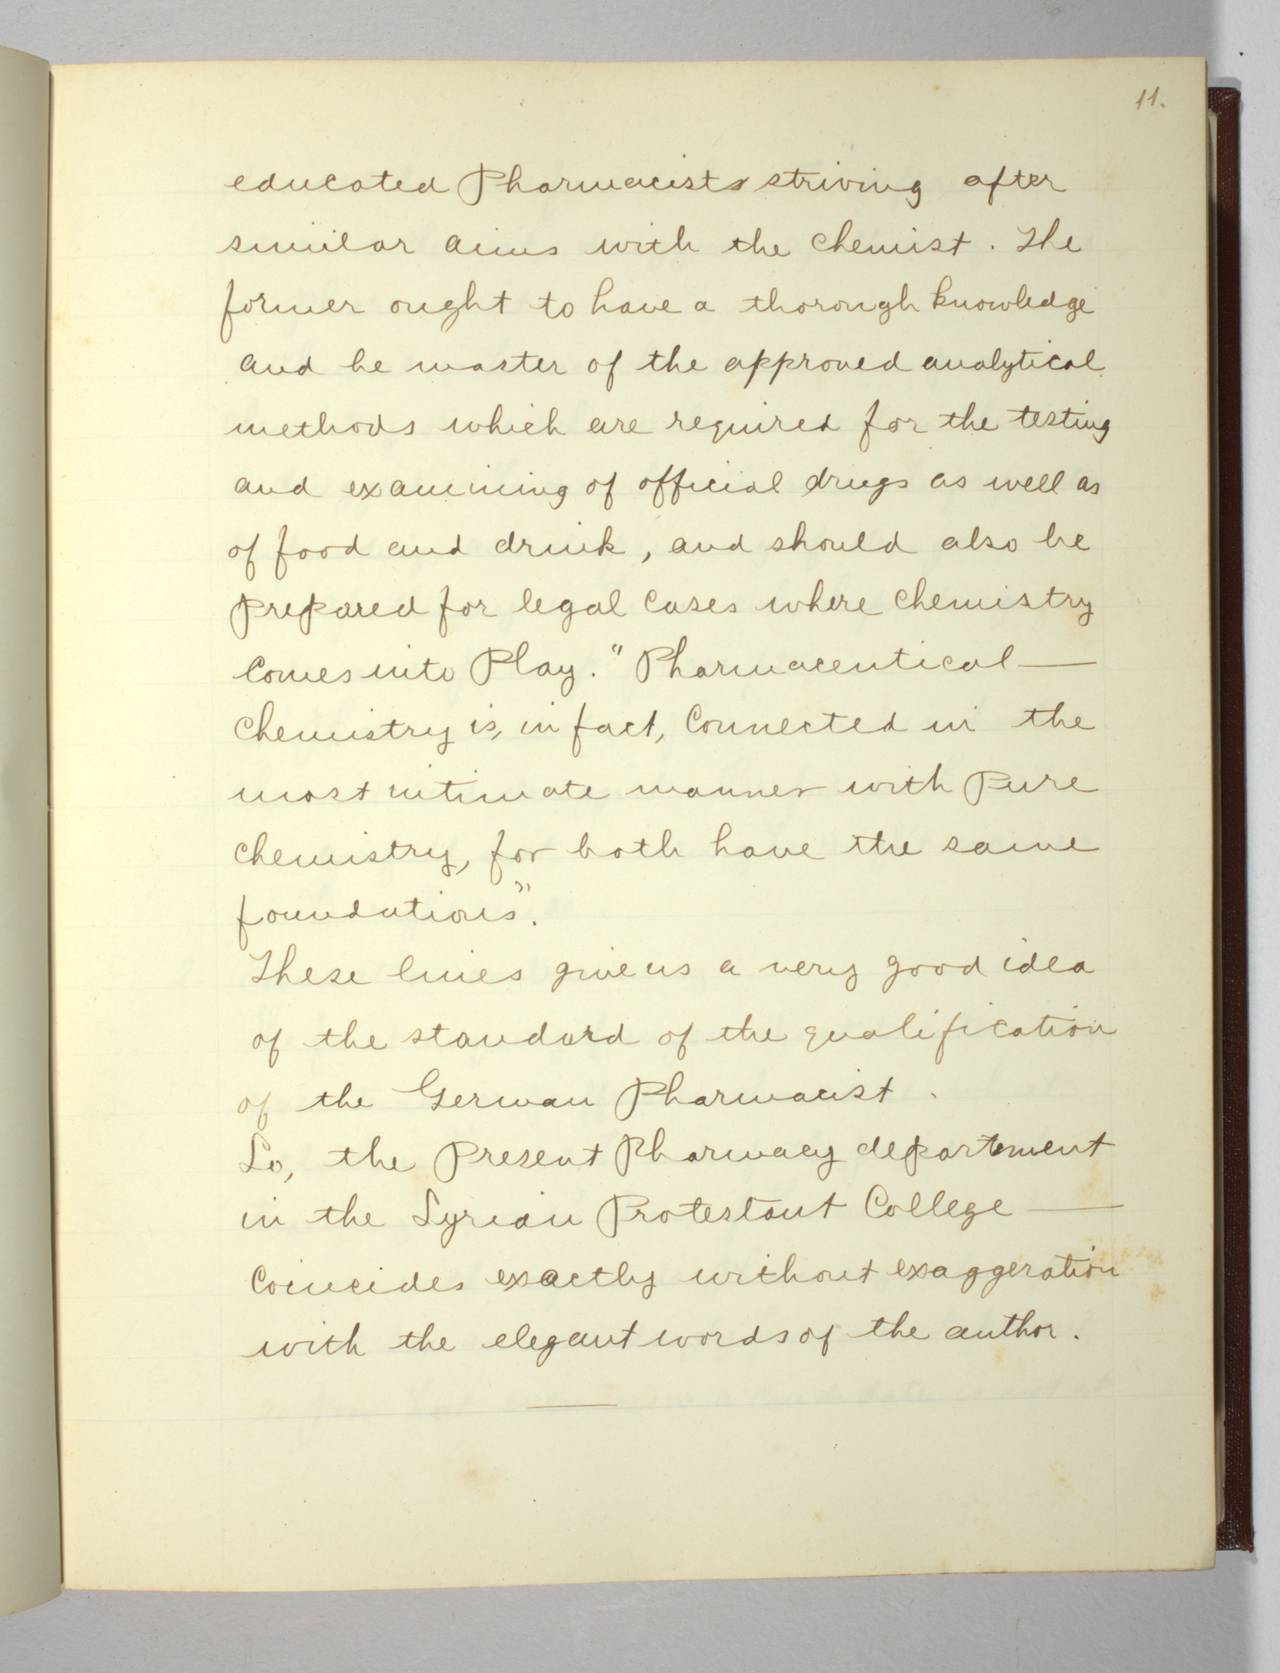 11.
educated Pharmacists striving after
similar aims with the chemist. The
former ought to have a thorough knowledge
and be master of the approved analytical
methods which are required for the testing
and examining of official drugs as well as
of food and drink, and should also be
prepared for legal cases where chemistry
comes into Play." Pharmaceutical —
chemistry is, in fact, Connected in the
most intimate manner with Pure
chemistry, for both have the same
foundations".
These lines give us a very good idea
of the standard of the qualification
of the German Pharmacist.
So, the Present Pharmacy department
in the Syrian Protestant College —
Coincides exactly without exaggeration
with the elegant words of the author.